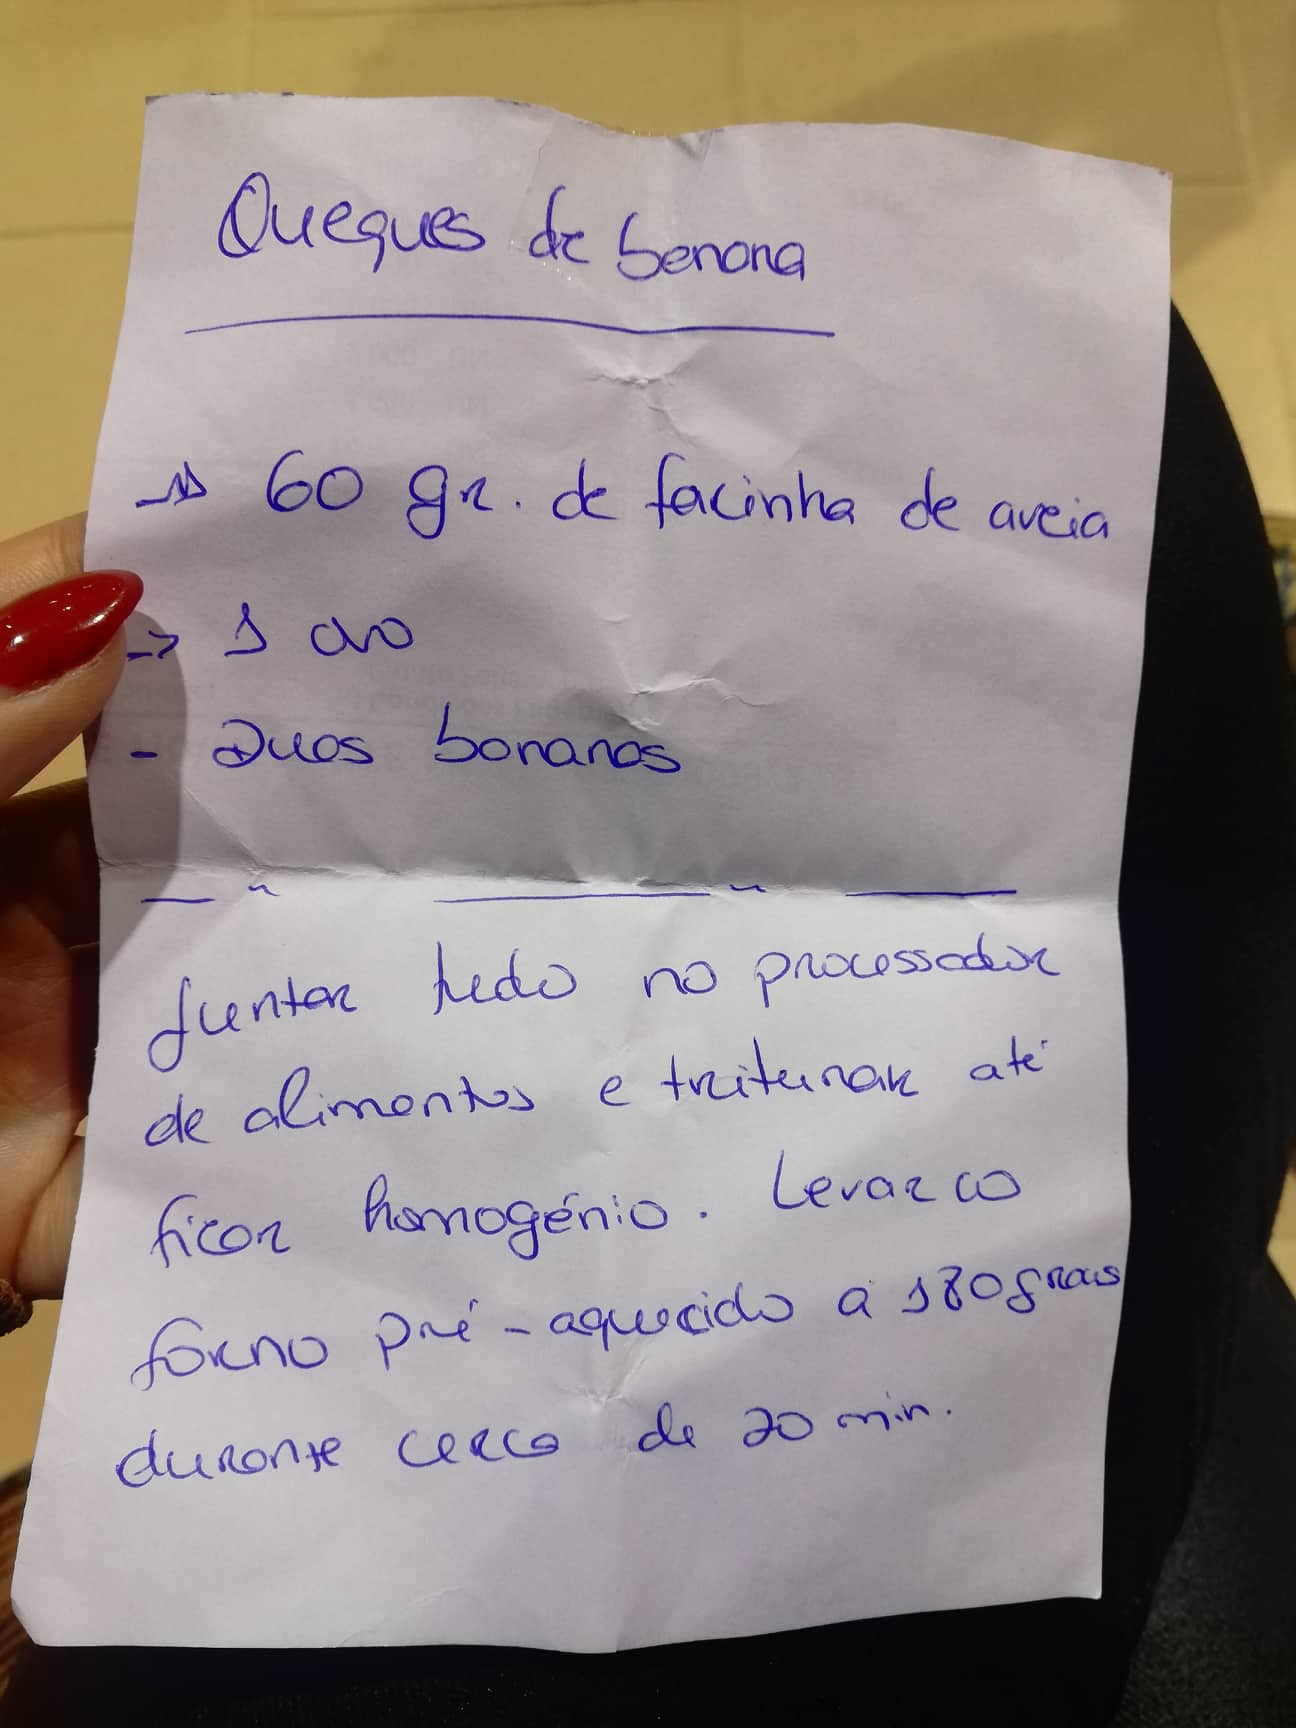 Queques de banana
→ 60 gr. de farinha de aveia
→ 1 ovo
- Duas bananas
Juntar tudo no processador
de alimentos e triturar até
ficar homogénio. Levar ao
forno pré-aquecido a 180 graus
durante cerca de 20 min.